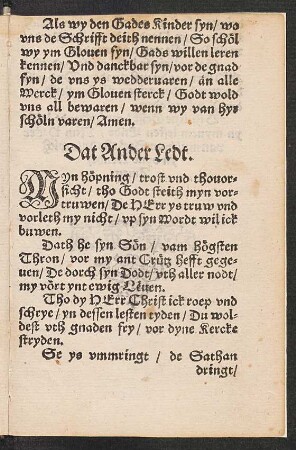 Als wy den Gades Kinder syn/ wo
vns de Schrifft deith nennen/ So schöl
wy ym Glouen syn/ Gads willen leren
kennen/ Vnd danckbar syn/ vor de gnad
syn/ de vns ys wedderuaren/ än alle
Werck/ ym Glouen sterck/ Godt wold
vns all bewaren/ wenn wy van hyr
schöln varen/ Amen.
Dat Ander Ledt.
MYn höpning/ trost vnd thouor-
sicht/ tho Godt steith myn vor-
truwen/ De HErr ys truw vnd
vorleth my nicht/ vp syn Wordt wil ick
buwen.
Dath he syn Sön/ vam högsten
Thron/ vor my ant Crütz hefft gege-
uen/ De dorch syn Dodt/ vth aller nodt/
my vört ynt ewig Leuen.
Tho dy HErr Christ ick roep vnd
schrye/ yn dessen lesten tyden/ Du wol-
dest vth gnaden fry/ vor dyne Kercke
stryden.
Se ys vmmringt/ de Sathan
dringt/